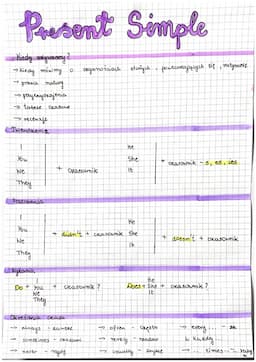 Present Simple
Kiedy używamy?
→ Kiedy mówimy o czynnościach stałych, powtarzających się, rutynowych
→ prawa natury
→ przyzwyczajenia
→ 
→ recenzje
Twierdzenia
I
You
We
They
+ czasownik
He
She
It
+ czasownik - s, es, ies
Przeczenia
I
You
We
They
+ didn't + czasownik
He
She
It
+ doesn't + czasownik
Pytania
Do + You + czasownik?
We
They
He
Does + She + czasownik?
It
Określenia czasu
→ always - zawsze
→ sometimes - czasami
→ never - nigdy
→ often - często
→ rarely - rzadko
→ usually - zwykle
→ every... - co